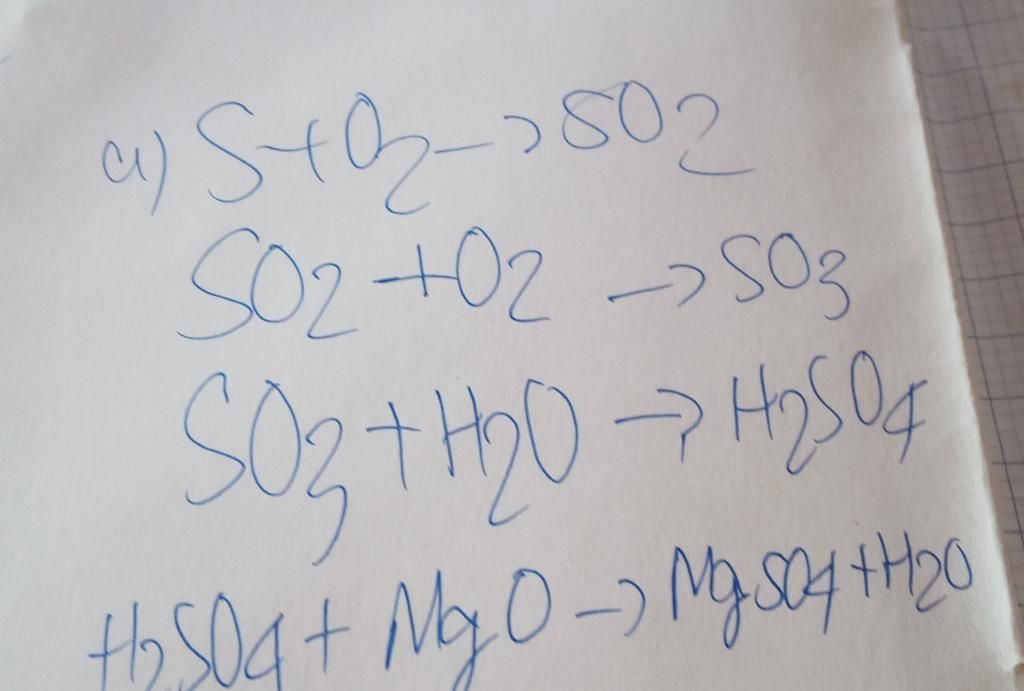 a) S+O2->SO2
SO2+O2->SO3
SO3+H2O->H2SO4
H2SO4+MgO->MgSO4+H2O